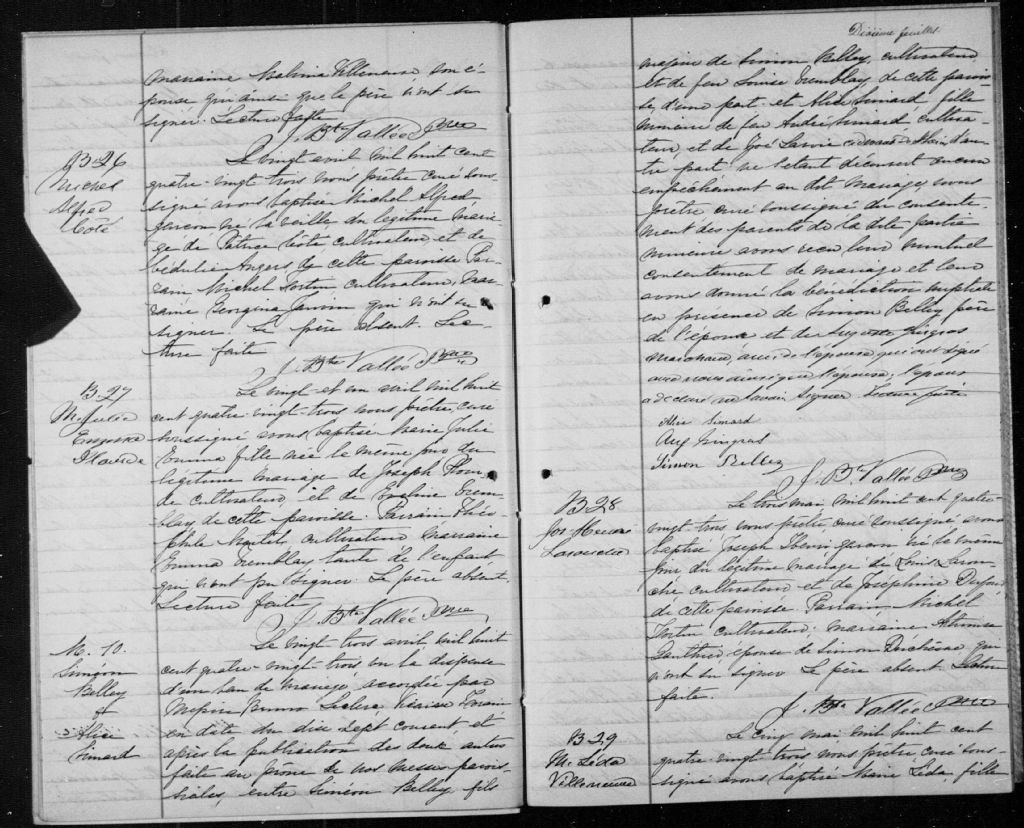 marraine Malvina Villeneuve son é-
pouse qui ainsi que le père n'ont su
signer. Lecture faite
J. Bte Vallée Ptre
B-26
Michel
Alfred
Coté
Le vingt avril mil huit cent
quatre-vingt trois nous prêtre curé sous-
signé avons baptisé Michel Alfred,
garçon né la veille, du légitime maria-
ge de Patrice Coté cultivateur, et de
Cédulie Angers de cette paroisse Par-
rain Michel Fortin cultivateur, mar-
raine Georgina qui n'ont su
signer. Le père absent. Lec-
ture faite
J. Bte Vallée Ptre
B-27
M. Julie
Emma
Le vingt et un avril mil huit
cent quatre-vingt-trois nous prêtre, curé
soussigné avons baptisé Marie Julie
Emma fille née le même jour du
légitime mariage de Joseph
de cultivateur, et de Eveline Trem-
blay de cette paroisse. Parrain Théo-
phile cultivateur marraine
Emma Tremblay tante de l'enfant,
qui n'ont pu signer. Le père absent.
Lecture faite
J. Bte Vallée Ptre
M. 10.
Siméon
Belley
&
Alice
Simard
Le vingt trois avril, mil huit
cent quatre-vingt trois, vu la dispense
d'un ban de mariage, accordée par
Messire Bruno Leclerc Vicaire Forain
en date du dix sept courant, et
après la publication des deux autres
faite au prône de nos messes parois-
siales, entre Siméon Belley, fils
Dixième feuillet
majeur de Simon Belley, cultivateur
et de feu Louise Tremblay, de cette parois-
se d'une part et Alice Simard fille
mineure de feu André Simard cultiva-
teur, et de d'au-
tre part ne s'étant découvert aucun
empêchement au dit mariage nous
prêtre curé soussigné du consente-
ment des parents de la dite partie
mineure avons reçu leur mutuel
consentement de mariage et leur
avons donné la bénédiction nuptiale
en présence de Simon Belley père
de l'époux et de Auguste Gingras
marchand, de l'épouse qui ont signé
avec nous ainsi que l'épouse; l'époux
a déclaré ne savoir signer. Lecture faite
Alice Simard
Aug Gingras
Simon Belley
J. Bte Vallée Ptre
B-28
Jos Henri
Larouche
Le trois mai, mil huit cent quatre-
vingt trois, nous prêtre curé soussigné avons
baptisé Joseph Henri garçon né le même
jour du légitime mariage de Louis Larou-
che, cultivateur et de Joséphine Dufour
de cette paroisse. Parrain Michel
Fortin cultivateur; marraine
Gauthier, épouse de Simon Deschênes qui
n'ont su signer. Le père absent Lecture
faite.
J. Bte Vallée Ptre
B-29
M. Léda
Villeneuve
Le cinq mai, mil huit cent
quatre-vingt trois nous prêtre, curé sous-
signé avons baptisé Marie Léda, fille